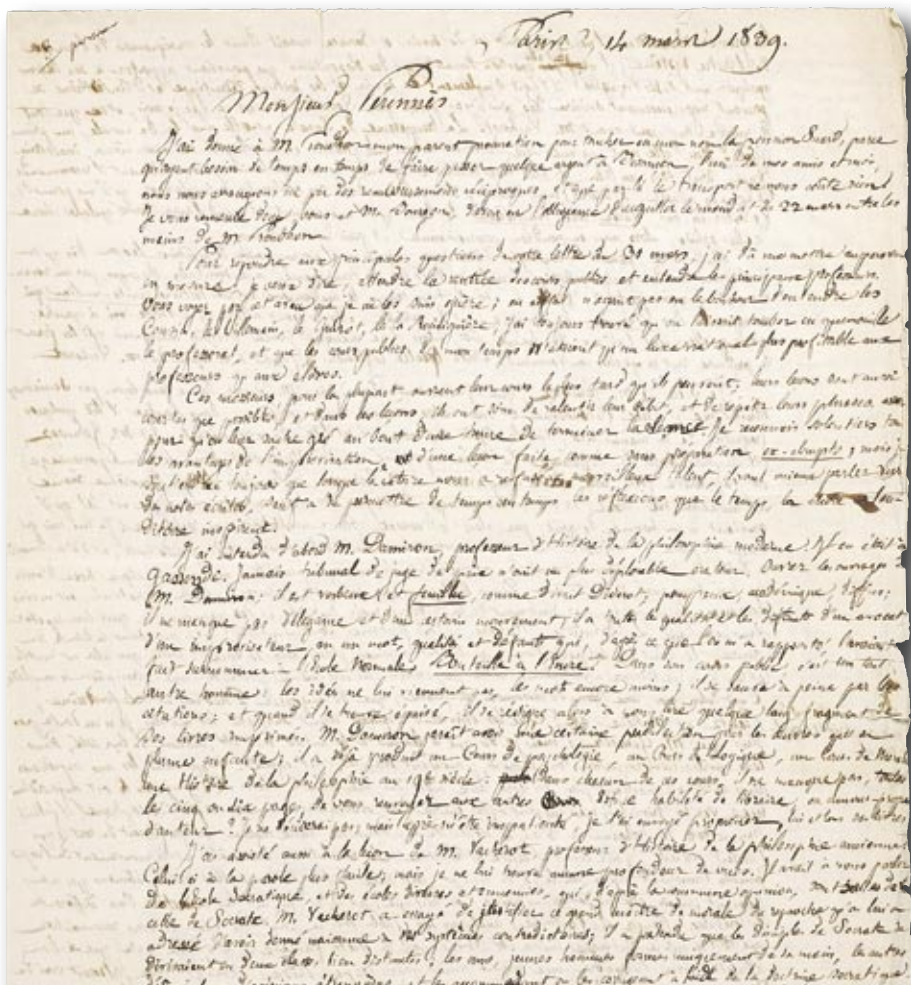 Paris, 14 mars 1839.
Monsieur Pérennès
J'ai donné à M. Proudhon mon parent procuration pour toucher en mon nom la pension Suard, parce
qu'ayant besoin de temps en temps de faire passer quelque argent à Besançon, l'un de mes amis et moi,
nous nous arrangeons ici par des remboursements réciproques, et que par là le transport ne nous coûte rien.
Je vous demande donc, vous et M. Bourgon, d'avoir l'obligeance d'acquitter le mandat du 22 mars entre les
mains de M. Proudhon.
Pour répondre aux principales questions de votre lettre du mars, j'ai dû me mettre
en mesure, je veux dire, attendre la rentrée des cours publics et entendre les principaux professeurs.
Vous voyez par cet aveu que je ne les suis guère; en effet, n'ayant pas eu le bonheur d'entendre les
Cousin, les Villemain, les Guizot, les la Romiguière, j'ai toujours trouvé qu'on laissait tomber en quenouille
le professorat, et que les cours publics de mon temps n'étaient qu'un luxe national plus profitable aux
professeurs qu'aux élèves.
Ces messieurs, pour la plupart ouvrent leur cours le plus tard qu'ils peuvent; leurs leçons sont aussi
courtes que possible, et dans les leçons, ils ont soin de ralentir leur débit, et de répéter leurs phrases
pour qu'il leur reste au bout d'une heure de terminer la Je reconnais volontiers
les avantages de l'improvisation, et d'une leçon faite, comme sans préparation, ex-abrupto; mais
toujours que lorsque la nature nous a refusé ce merveilleux talent, il vaut mieux parler sur
des notes écrites, sauf à se permettre de temps en temps les réflexions que le temps, la
inspirent.
J'ai entendu d'abord M. Damiron, professeur d'Histoire de la philosophie moderne. Il en était à
Gassendi. Jamais tribunal de juge de paix n'ouït un plus déplorable orateur. Ouvrez les ouvrages de
M. Damiron; il est verbeux et feuillu, comme disait Diderot, pompeux, académique, diffus;
il ne manque pas d'élégance et d'un certain mouvement; il a toutes les qualités et les défauts d'un avocat
d'un improvisateur, en un mot, qualités et défauts qui, d'après ce que l'on m'a rapporté, l'avaient
fait surnommer à l'école Normale, Bouteille à l'encre. Dans son cours public c'est un tout
autre homme: les idées ne lui viennent pas, les mots encore moins; il se sauve à peine par les
citations; et quand il se trouve épuisé, il se résigne alors à vous lire quelque long fragment de
ses livres imprimés. M. Damiron paraît avoir une certaine prédilection pour les œuvres que sa
plume enfante; il a déjà produit un Cours de psychologie, un Cours de Logique, un Cours de Morale
une Histoire de la philosophie au 19e siècle: dans chacun de ces cours, il ne manque pas, toutes
les cinq ou dix pages, de vous renvoyer aux autres. Est-ce habileté de libraire, ou amour-propre
d'auteur? Je ne
J'ai assisté aussi à la leçon de M. Vacherot, professeur d'Histoire de la philosophie ancienne.
Celui-ci a la parole plus facile, mais je ne lui trouve aucune profondeur de vues. Il avait à nous parler
de l'école Socratique, et des écoles diverses et ennemies, qui, d'après la commune opinion, sont sorties de
celle de Socrate. M. Vacherot a essayé de justifier ce grand maître de morale du reproche qu'on lui a
adressé d'avoir donné naissance à des systèmes contradictoires; il a prétendu que les disciples de Socrate se
divisaient en deux classes bien distinctes: les uns, jeunes hommes formés uniquement de sa main, les autres
de la doctrine socratique